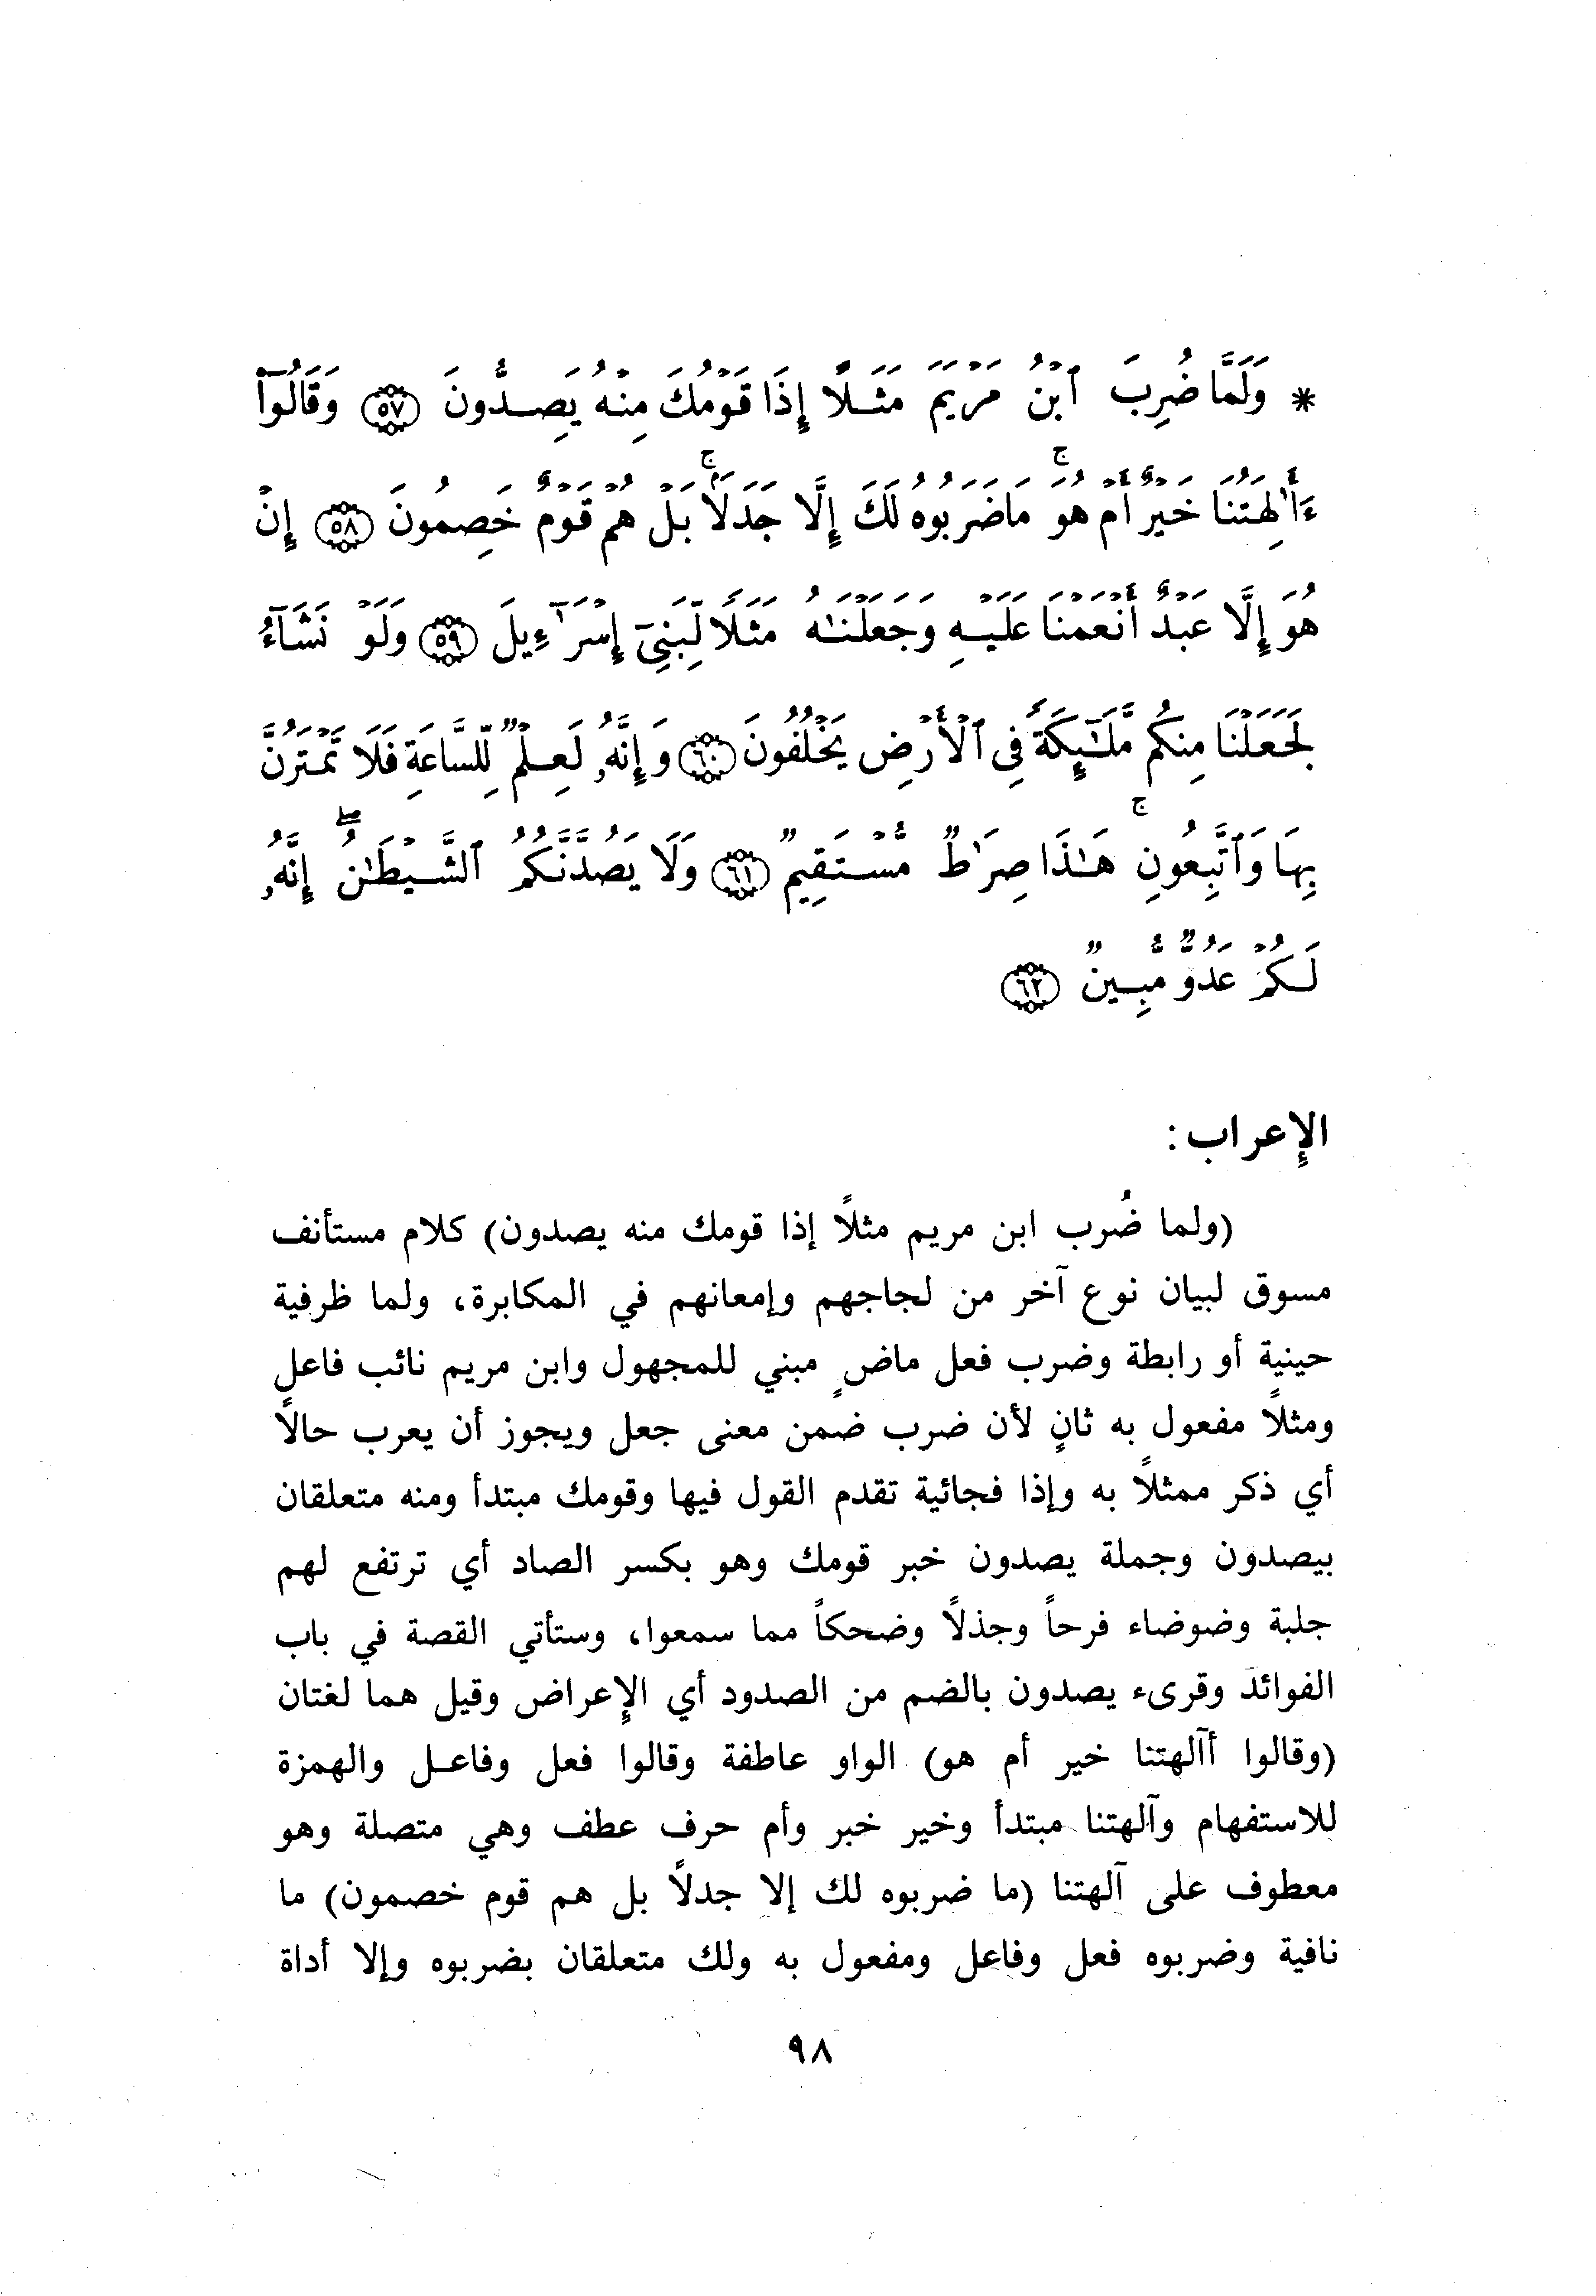 * وَلَمَّا ضُرِبَ ٱبْنُ مَرْيَمَ مَثَلًا إِذَا قَوْمُكَ مِنْهُ يَصِدُّونَ ﴿٥٧﴾ وَقَالُوٓا۟
ءَأَٰلِهَتُنَا خَيْرٌ أَمْ هُوَ ۚ مَا ضَرَبُوهُ لَكَ إِلَّا جَدَلًا ۚ بَلْ هُمْ قَوْمٌ خَصِمُونَ ﴿٥٨﴾ إِنْ
هُوَ إِلَّا عَبْدٌ أَنْعَمْنَا عَلَيْهِ وَجَعَلْنَٰهُ مَثَلًا لِّبَنِىٓ إِسْرَٰٓءِيلَ ﴿٥٩﴾ وَلَوْ نَشَآءُ
لَجَعَلْنَا مِنكُم مَّلَٰٓئِكَةً فِى ٱلْأَرْضِ يَخْلُفُونَ ﴿٦٠﴾ وَإِنَّهُۥ لَعِلْمٌ لِّلسَّاعَةِ فَلَا تَمْتَرُنَّ
بِهَا وَٱتَّبِعُونِ ۚ هَٰذَا صِرَٰطٌ مُّسْتَقِيمٌ ﴿٦١﴾ وَلَا يَصُدَّنَّكُمُ ٱلشَّيْطَٰنُ ۖ إِنَّهُۥ
لَكُمْ عَدُوٌّ مُّبِينٌ ﴿٦٢﴾
الإعراب :
(ولما ضُرب ابن مريم مثلاً إذا قومك منه يصدون) كلام مستأنف
مسوق لبيان نوع آخر من لجاجهم وإمعانهم في المكابرة، ولما ظرفية
حينية أو رابطة وضرب فعل ماضٍ مبني للمجهول وابن مريم نائب فاعل
ومثلاً مفعول به ثانٍ لأن ضرب ضمن معنى جعل ويجوز أن يعرب حالاً
أي ذكر ممثلاً به وإذا فجائية تقدم القول فيها وقومك مبتدأ ومنه متعلقان
بيصدون وجملة يصدون خبر قومك وهو بكسر الصاد أي ترتفع لهم
جلبة وضوضاء فرحاً وجذلاً وضحكاً مما سمعوا، وستأتي القصة في باب
الفوائد وقرىء يصدون بالضم من الصدود أي الإعراض وقيل هما لغتان
(وقالوا أآلهتنا خير أم هو) الواو عاطفة وقالوا فعل وفاعل والهمزة
للاستفهام وآلهتنا مبتدأ وخير خبر وأم حرف عطف وهي متصلة وهو
معطوف على آلهتنا (ما ضربوه لك إلا جدلاً بل هم قوم خصمون) ما
نافية وضربوه فعل وفاعل ومفعول به ولك متعلقان بضربوه وإلا أداة
٩٨